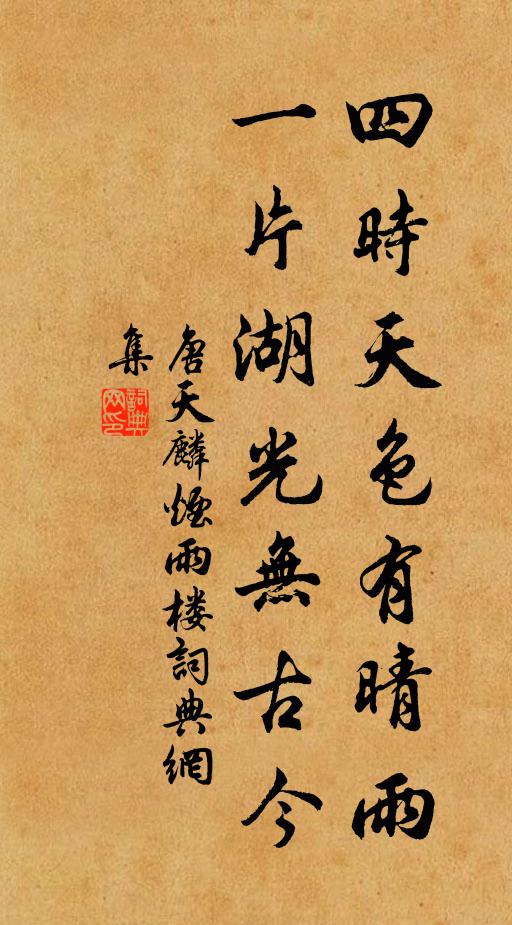 四時天色有晴雨
一片湖光無古今
唐天麟煙雨楼詞典網
集
詞典
网印